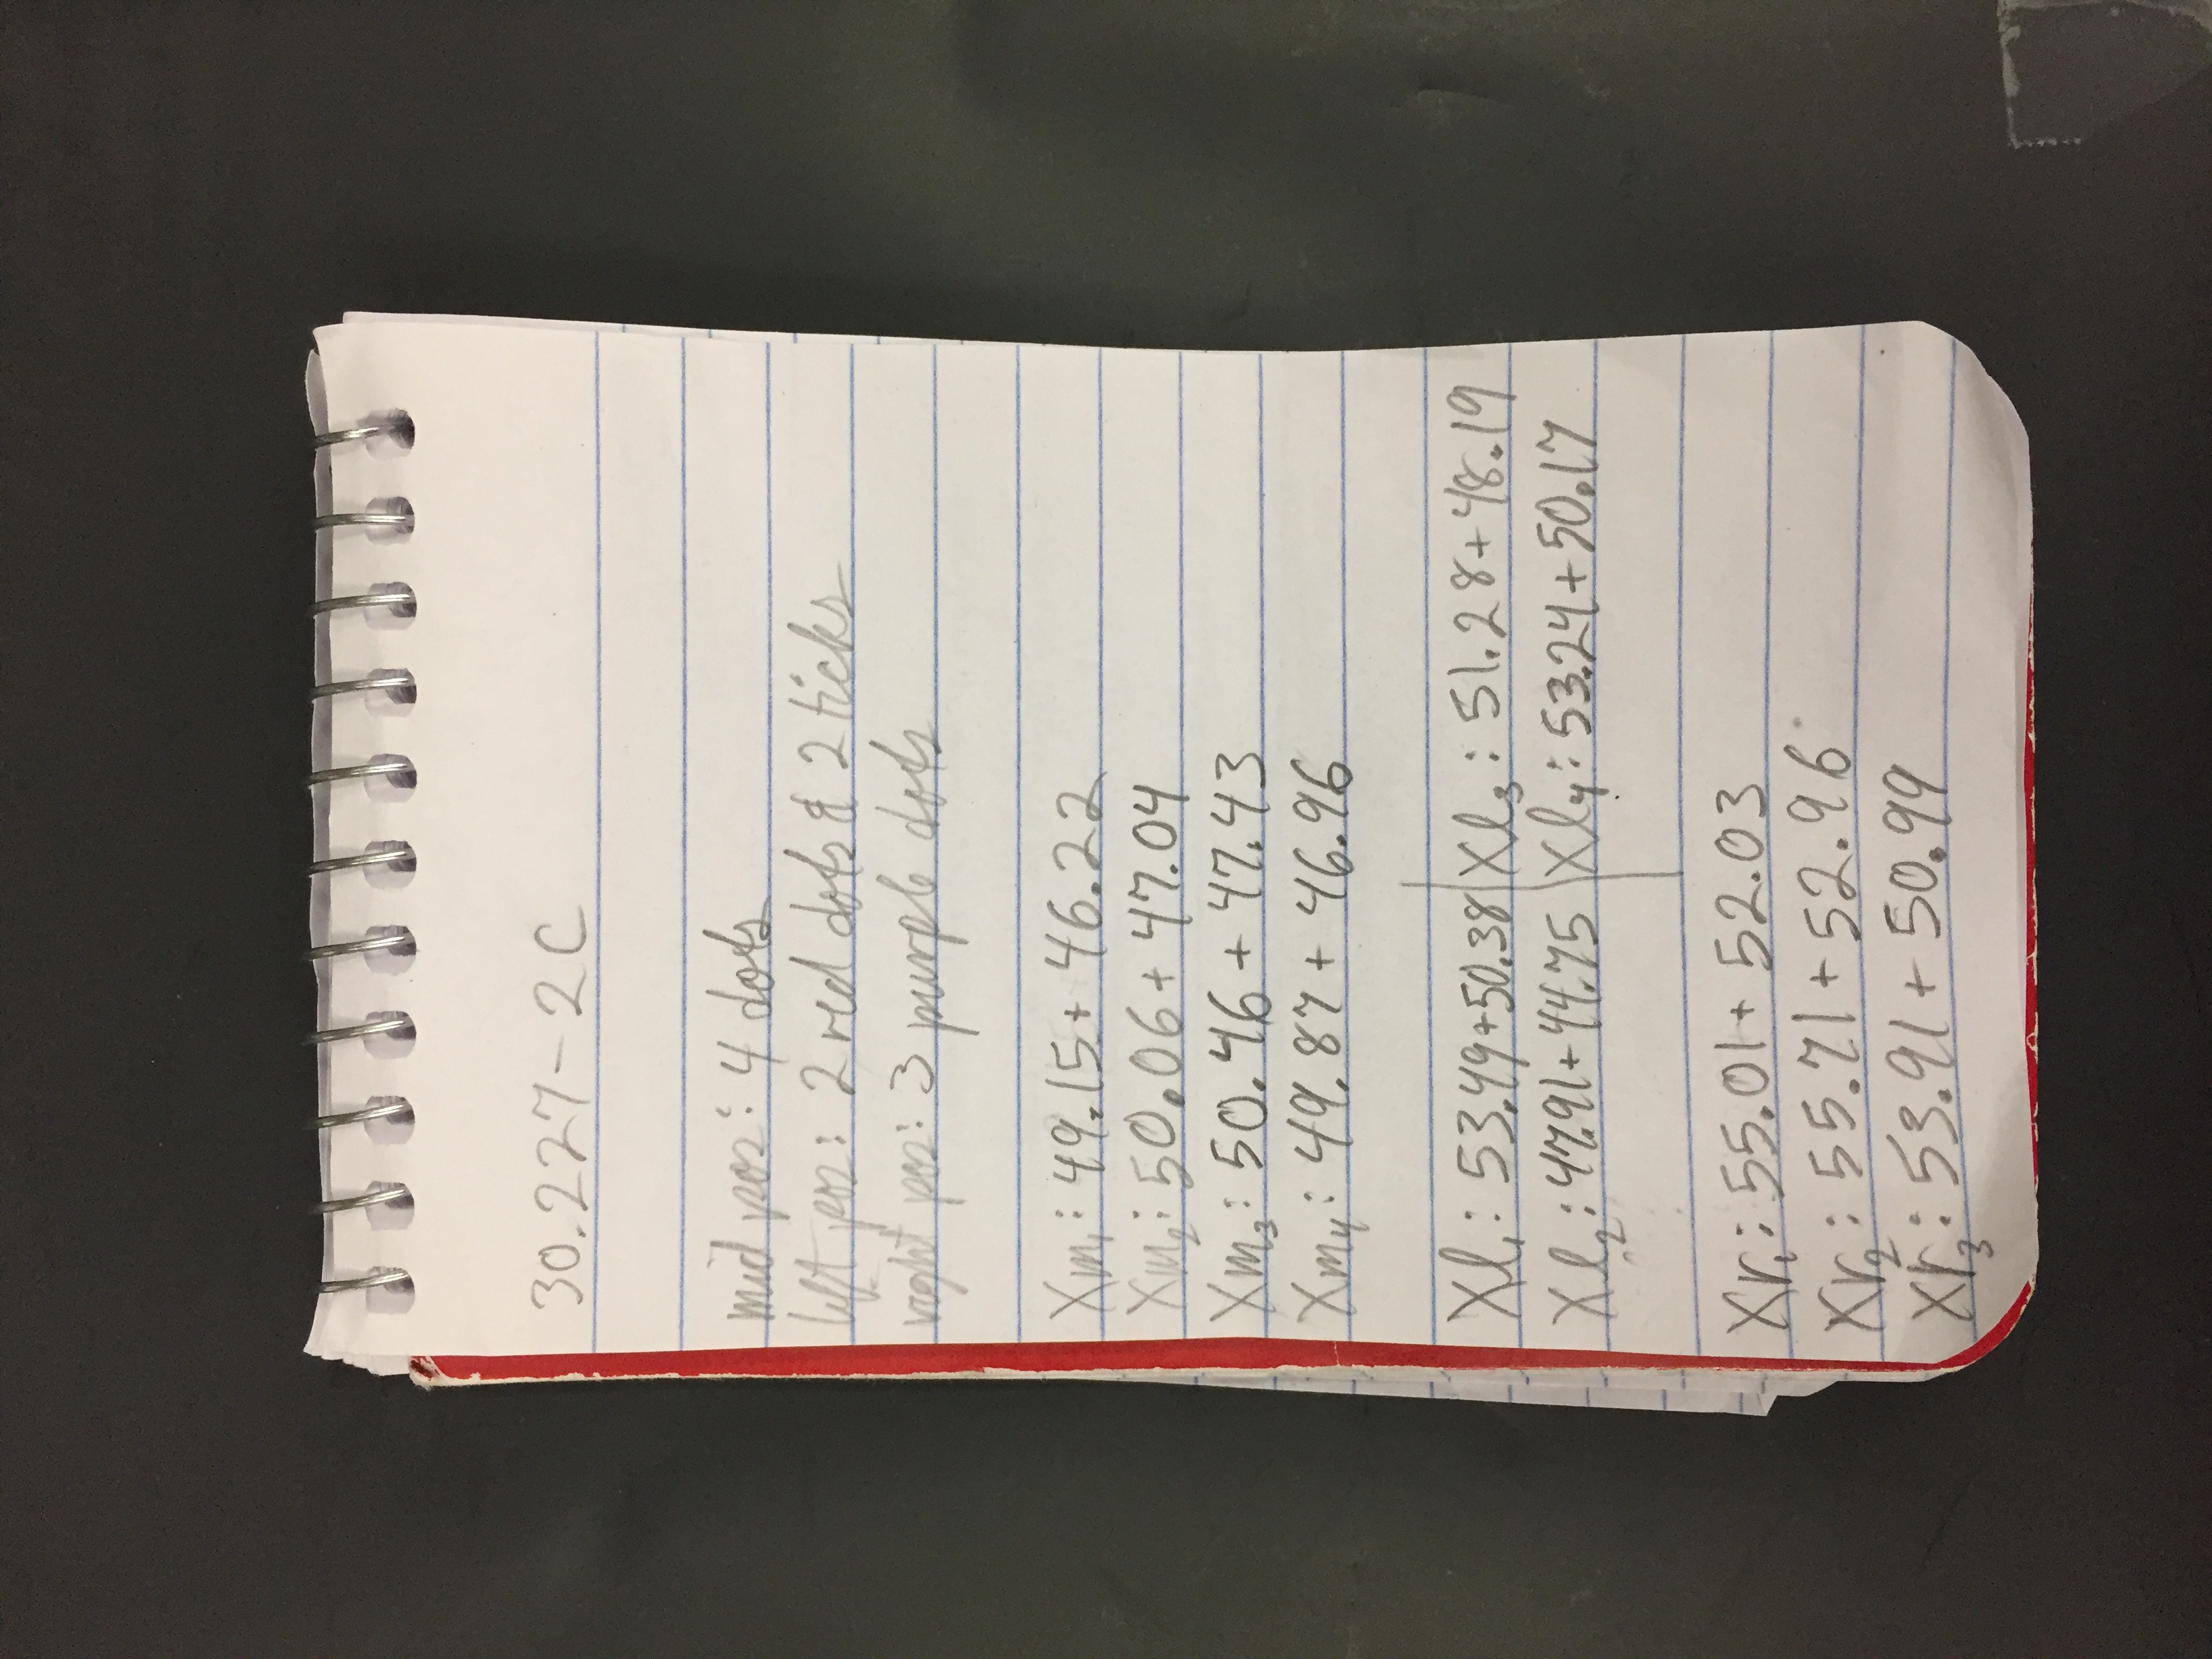 30.227-2C
mid pos: 4 dots
left pos: 2 red dots & 2 ticks
right pos: 3 purple dots
Xm₁: 49.15 + 46.22
Xm₂: 50.06 + 47.04
Xm₃: 50.46 + 47.43
Xm₄: 49.87 + 46.96
Xl₁: 53.49+50.38 | Xl₃: 51.28+48.19
Xl₂: 47.91+44.75 | Xl₄: 53.24+50.17
Xr₁: 55.01 + 52.03
Xr₂: 55.71 + 52.96
Xr₃: 53.91 + 50.99